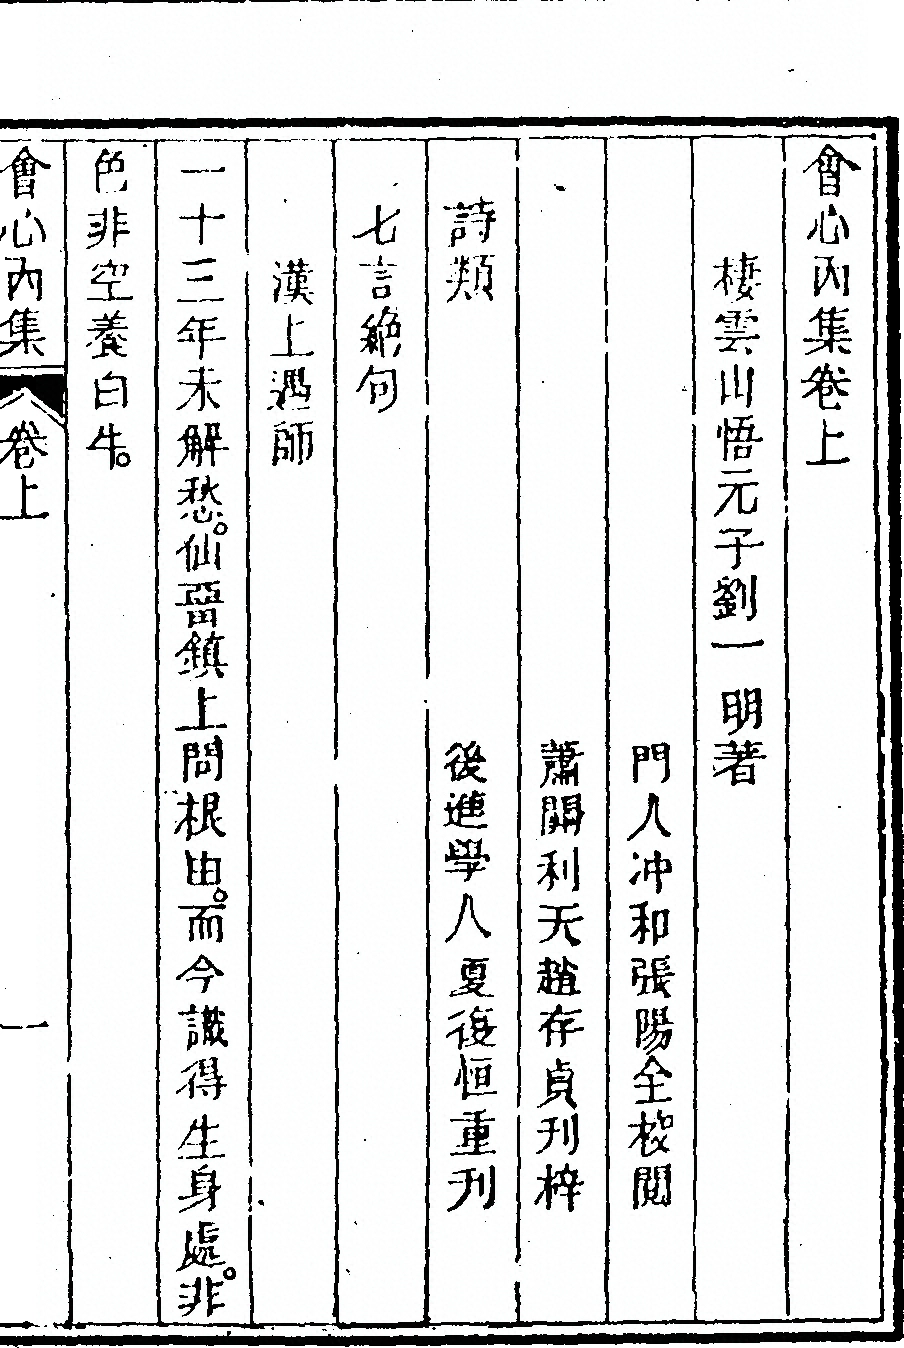 會心內集卷上
棲雲山悟元子劉一明著
門人冲和張陽全校閱
蕭關利天趙存貞刊梓
詩類
後進學人夏復恒重刊
七言絶句
漢上遇師
一十三年未解愁。仙畱鎮上問根由。而今識得生身處。非
色非空養白牛。
會心內集
卷上
一